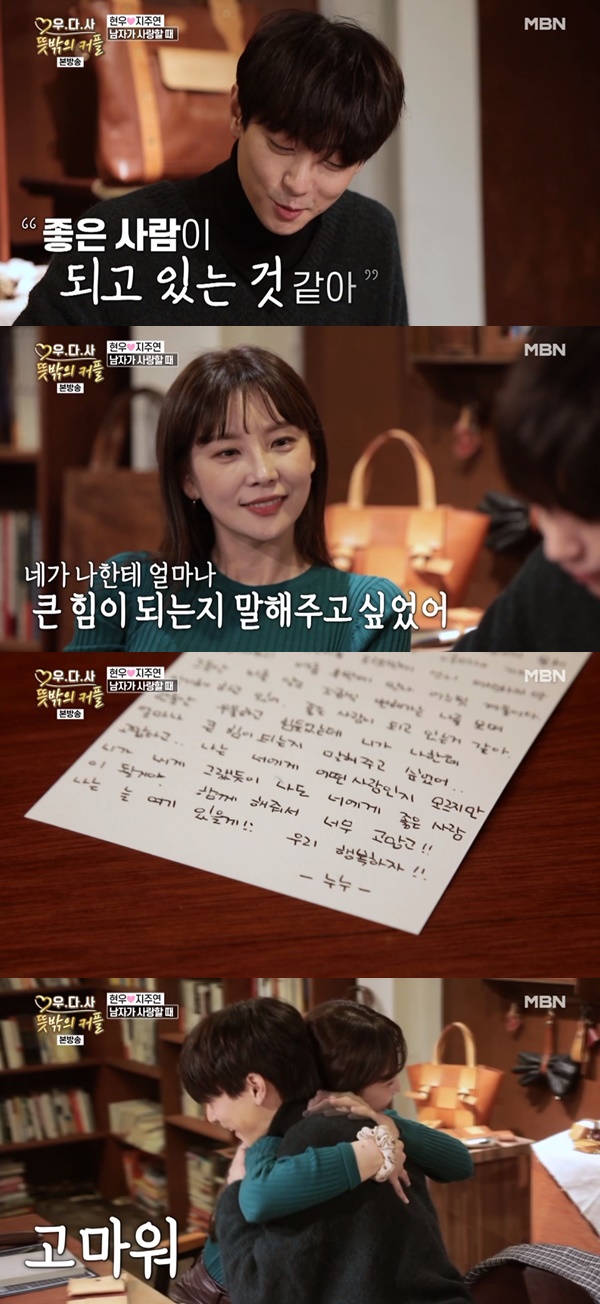 우.다.사
뜻밖의 커플
본방송
현우♥지주연
남자가 사랑할 때
MBN
“ 좋은 사람이
되고 있는 것 같아 ”
우.다.사
뜻밖의 커플
본방송
현우♥지주연
남자가 사랑할 때
MBN
네가 나한테 얼마나
큰 힘이 되는지 말해주고 싶었어
우.다.사
뜻밖의 커플
본방송
현우♥지주연
남자가 사랑할 때
MBN
나를 보며
좋은 사람이 되고 있는거 같아.
힘들었는데 니가 나한테
얼마나 큰 힘이 되는지 말해주고 싶었어..
고맙고.. 나는 너에게 어떤 사람인지 모르지만
니가 내게 그랬듯이 나도 너에게 좋은 사람
이 될게. 함께 해줘서 너무 고맙고!!
나는 늘 여기 있을게!! 우리 행복하자!!
- 누누 -
우.다.사
뜻밖의 커플
본방송
현우♥지주연
남자가 사랑할 때
MBN
고마워